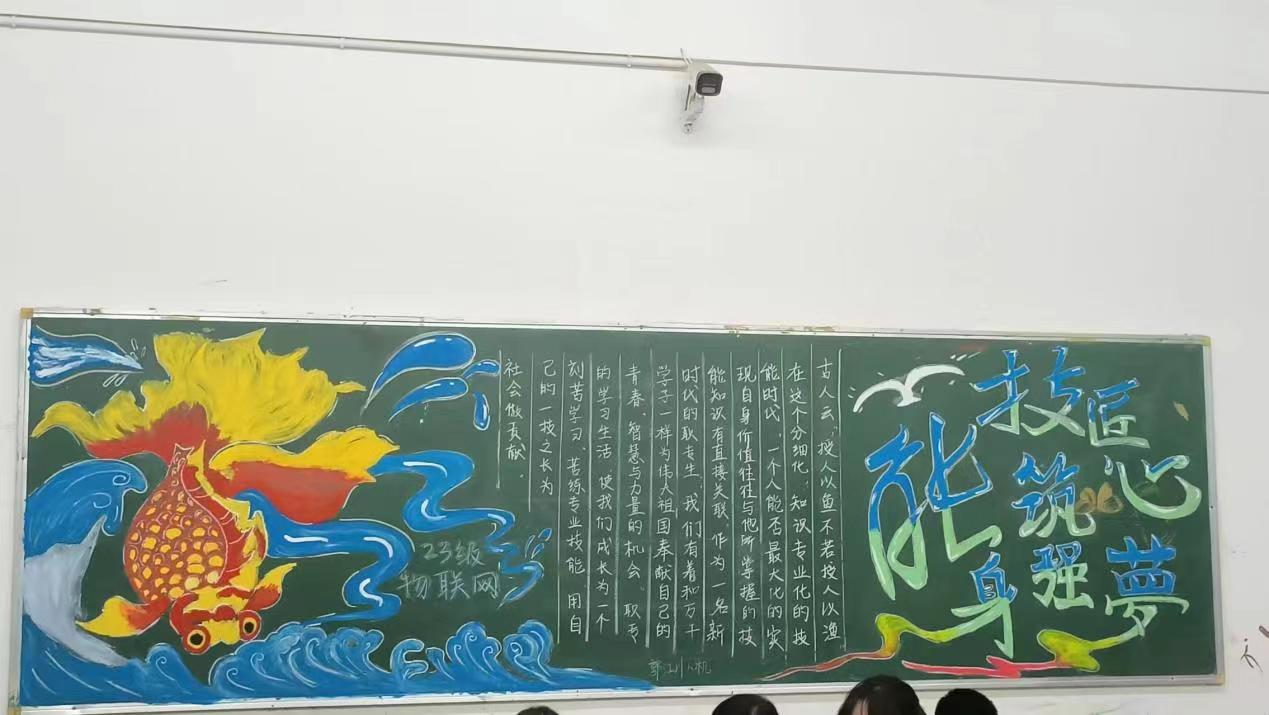 匠心筑夢
技能强身
古人云，授人以鱼不若授人以渔
在这个分细化、知识专业化的技
能时代，一个人能否最大化的实
现自身价值往往与他所掌握的技
能知识有直接关联。作为一名新
时代的职专生，我们有着和万千
学子一样为伟大祖国奉献自己的
青春、智慧与力量的机会。职专
的学习生活，使我们成长为一个
刻苦学习、苦练专业技能，用自
己的一技之长为
社会做贡献。
23级
物联网